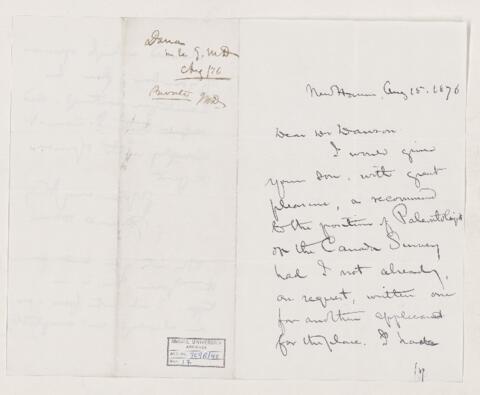 Dana
in re G.M.D
Aug/76
Private GMD
New Haven, Aug 15. 1876
Dear Dr Dawson.
I would give
your son, with great
pleasure, a recommend
to the position of Paleontologist
on the Canada Survey
had I not already,
on request, written one
for another applicant
for the place. I had
McGILL UNIVERSITY
ARCHIVES
ACC. NO.
REF. 17